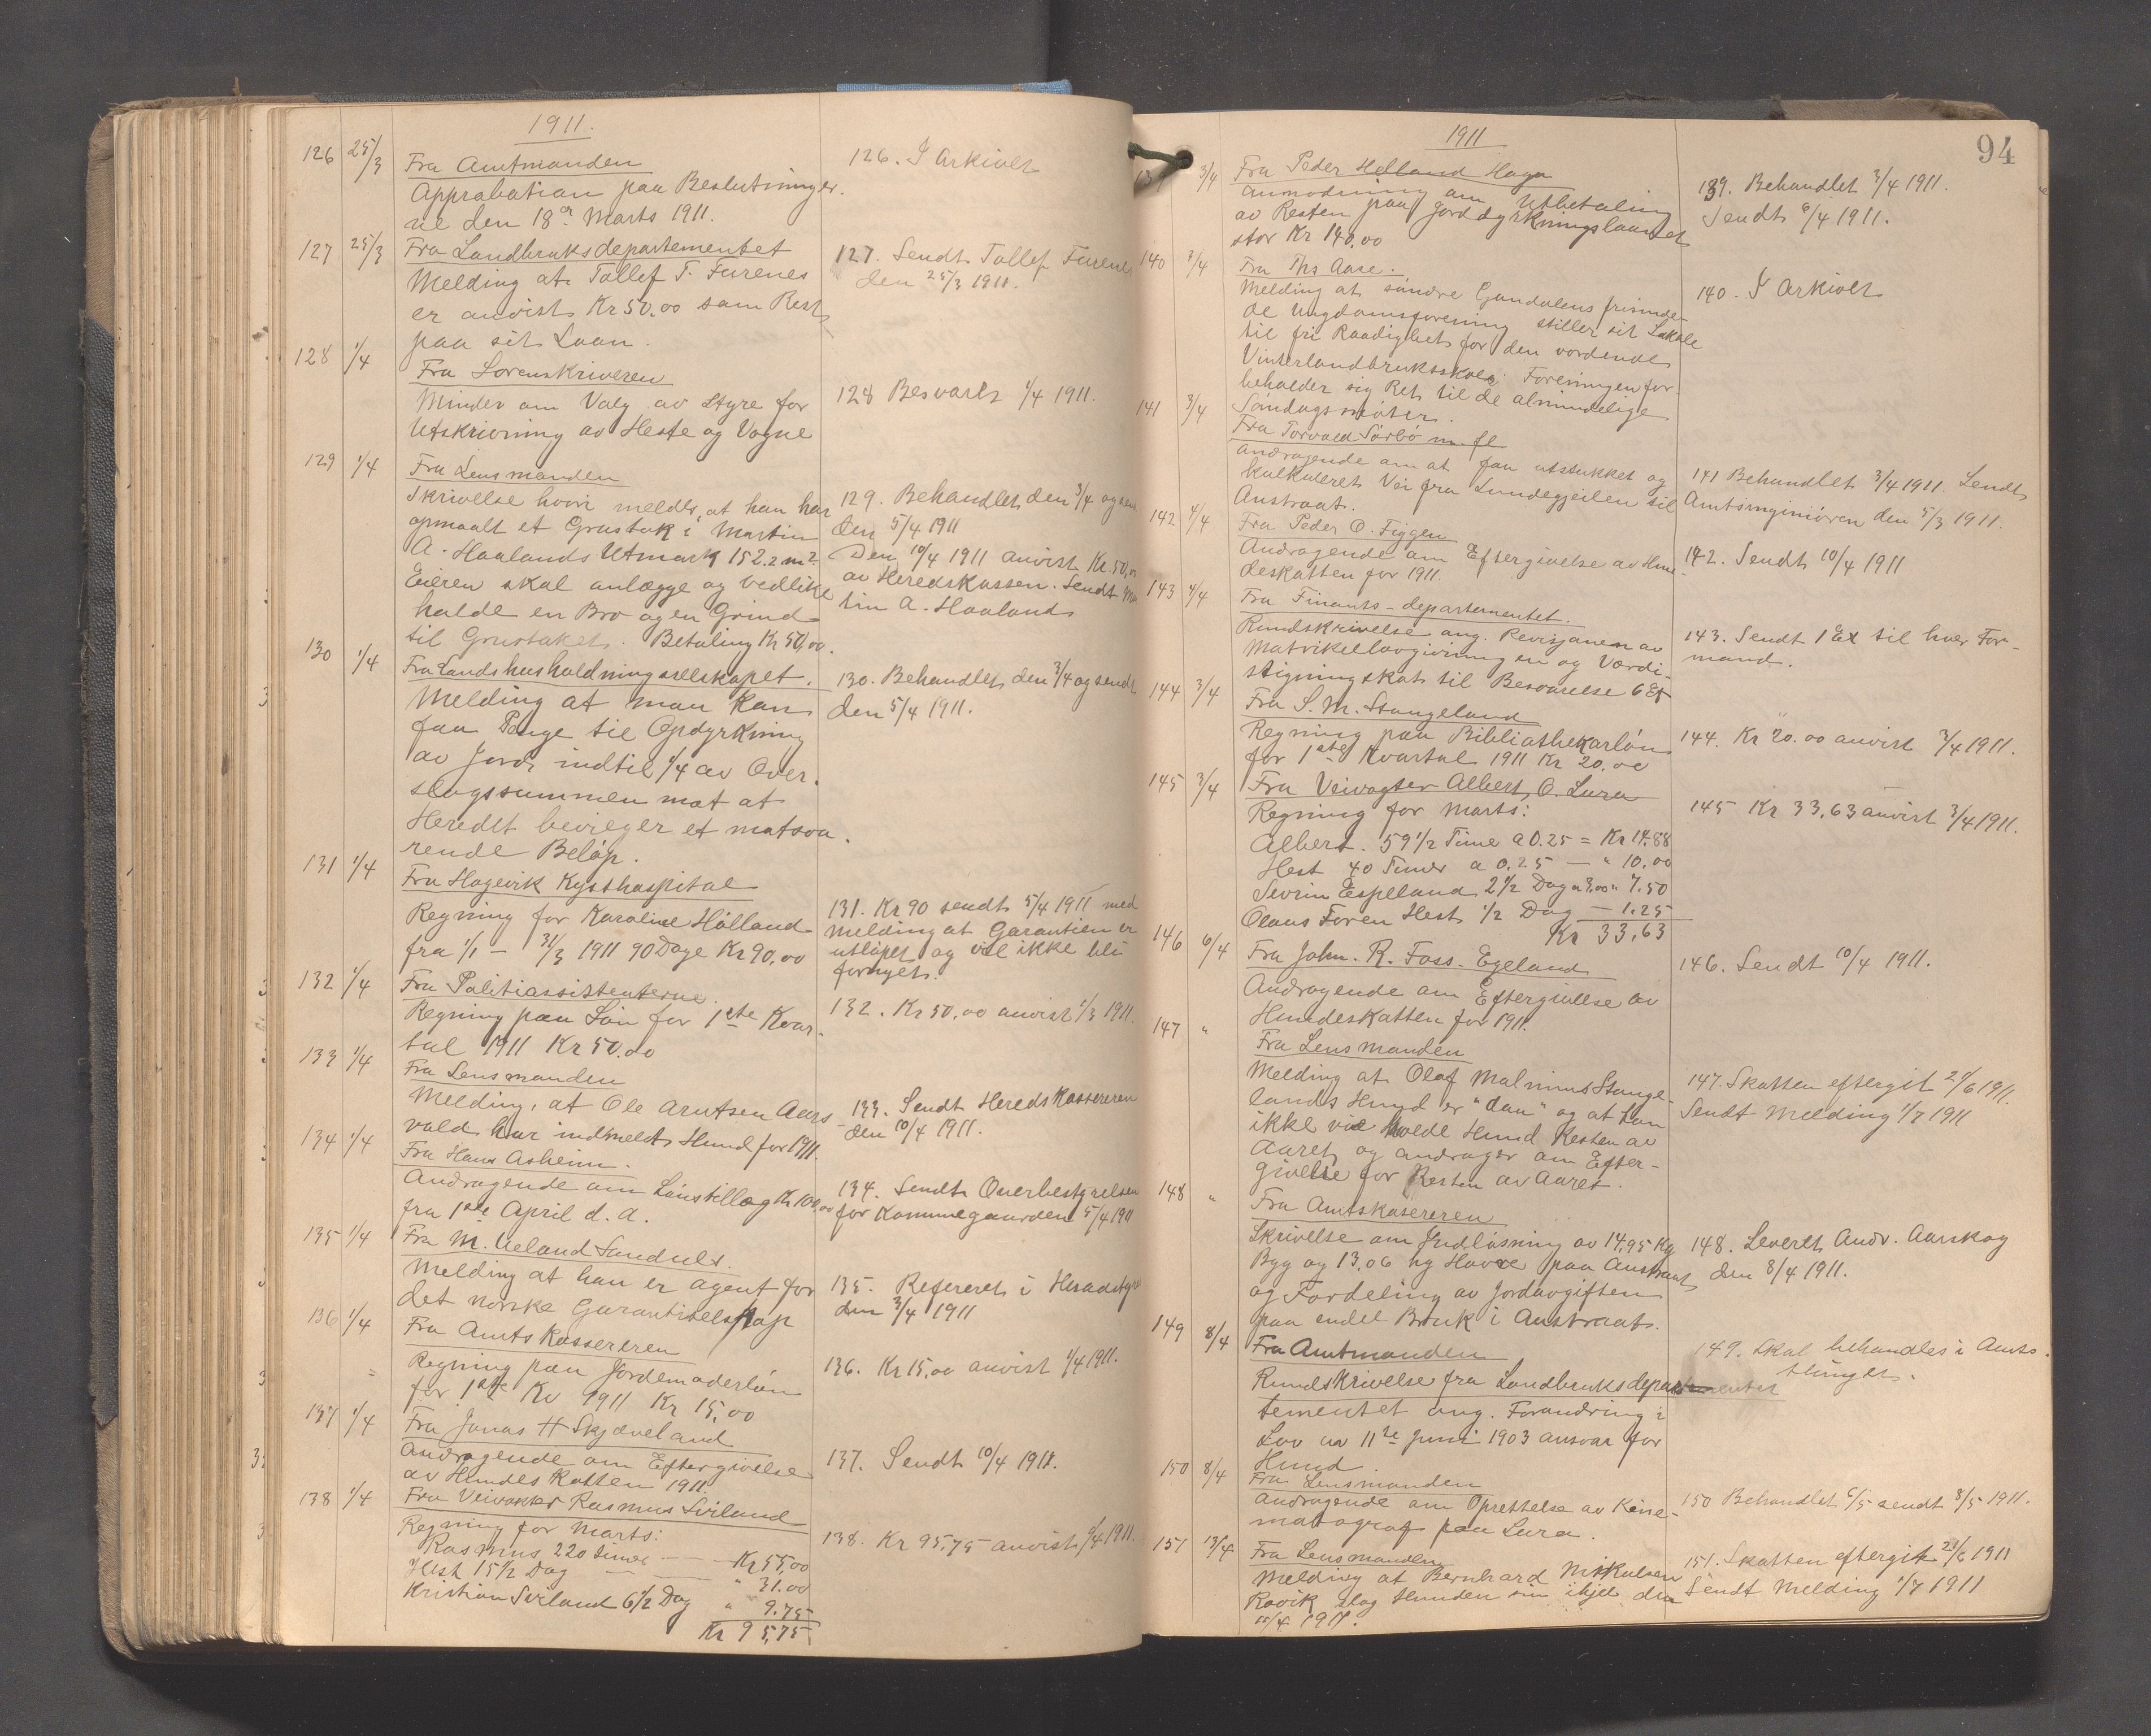 1911.
126 25/3 Fra Amtmanden
Approbation paa Beslutninger.
ne den 18de Marts 1911.
126. I Arkivet
127 25/3 Fra Landbruksdepartementet
Melding at Tollef T. Furenes
er anvist Kr 50.00 som Rest
paa sit Laan.
127. Sendt Tollef Furenes
den 25/3 1911.
128 1/4 Fra Sorenskriveren
Minder om Valg av Styre for
Utskrivning av Heste og Vogne
128 Besvart 1/4 1911.
129 1/4 Fra Lensmanden
Skrivelse hvori meldes, at han har
opmaalt et Grustak i Martin
A. Haalands Utmark 152.2 m2
Eieren skal anlægge og vedlike
holde en Bro og en Grind
til Grustaket. Betaling Kr 50,00.
129. Behandlet den 3/4 og sendt
den 5/4 1911
Den 10/4 1911 anvist Kr. 50,00
av Heredskassen. Sendt Mar
tin A. Haaland
130 1/4 Fra Landshusholdningsselskapet.
Melding at man kan
faa Penge til Opdyrkning
av Jord indtil 1/4 av Over.
slagssummen mot at
Heredet bevilger et motsva.
rende Beløp.
130. Behandlet den 3/4 og sendt
den 5/4 1911.
131 1/4 Fra Hagevik Kysthospital
Regning for Karoline Hølland
fra 1/1 - 31/3 1911 90 Dage Kr 90,00
131. Kr 90 sendt 5/4 1911 med
Melding at Garantien er
utløpet og vil ikke bli
fornyet.
132 1/4 Fra Politiassistenterne.
Regning paa Løn for 1ste Kvar-
tal 1911 Kr 50.00
132. Kr 50,00 anvist 1/3 1911.
133 1/4 Fra Lensmanden
Melding, at Ole Arntsen Aars
vold har indmeldt Hund for 1911.
133. Sendt Heredskassereren
den 10/4 1911.
134 1/4 Fra Hans Asheim.
Andragende om Lønstillæg Kr 100,00
fra 1ste April d. A.
134. Sendt Overbestyrelsen
for Kommegaarden 5/4 1911
135 1/4 Fra M. Ueland Sandnes.
Melding at han er Agent for
det norske Garantiselskap
135. Refereret i Heradsty
den 3/4 1911
136 1/4 Fra Amtskassereren
Regning paa Jordemoderløn
for 1ste Kv 1911 Kr 15,00
136. Kr 15,00 anvist 1/4 1911.
137 1/4 Fra Jonas H Skjæveland
Andragende om Eftergivelse
av Hundeskatten 1911.
137. Sendt 10/4 1911.
138 1/4 Fra Veivokter Rasmus Sviland
Regning for Marts:
Rasmus 220 Timer — Kr 55,00
Hest 15 1/2 Dag — " 31.00
Kristian Sviland 6 1/2 Dag " 9.75
Kr 95,75
138. Kr 95,75 anvist 1/4 1911.
1911
94
139 3/4 Fra Peder Helland Haga
Anmodning om Utbetaling
av Resten paa Jorddyrkningslaanet
stor Kr 140.00
139. Behandlet 3/4 1911.
Sendt 6/4 1911.
140 3/4 Fra Ths Aase.
Melding at søndre Gandalens frisinde-
de Ungdomsforening stiller sit Lokale
til fri Raadighet for den vordende
Vinterlandbruksskole. Foreningen for-
beholder sig Ret til de almindelige
Søndagsmøter.
140. I Arkivet
141 3/4 Fra Torvald Sørbø m. fl
Andragende om at faa utstukket og
kalkuleret Vei fra Lundegjeilen til
Austraat.
141 Behandlet 3/4 1911. Sendt
Amtsingeniøren den 5/3 1911.
142 4/4 Fra Peder O. Figgen
Andragende om Eftergivelse av Hun-
deskatten for 1911.
142. Sendt 10/4 1911
143 4/4 Fra Finants-departementet.
Rundskrivelse ang. Revisjonen av
Matrikellovgivningen og Værdi-
stigningskat til Besvarelse 6 Ex
143. Sendt 1 Ex til hver For-
mand.
144 3/4 Fra S. M. Stangeland
Regning paa Bibliothekarløn
for 1ste Kvartal 1911 Kr 20.00
144. Kr 20.00 anvist 3/4 1911.
145 3/4 Fra Veivogter Albert O. Lura
Regning for Marts:
Albert. 59 1/2 Time a 0.25 = Kr 14.88
Hest 40 Timer a 0.25 — " 10.00
Sevrin Espeland 2 1/2 Dag a 3,00 " 7.50
Olaus Foren Hest 1/2 Dag — 1.25
Kr 33,63
145 Kr 33,63 anvist 3/4 1911.
146 6/4 Fra John. R. Foss-Egeland
Andragende om Eftergivelse av
Hundeskatten for 1911.
146. Sendt 10/4 1911.
147 " Fra Lensmanden
Melding at Olaf Malmins Stange-
lands Hund er "dau" og at han
ikke vil holde Hund Resten av
Aaret og andrager om Efter-
givelse for Resten av Aaret.
147. Skatten eftergit 21/6 1911.
Sendt Melding 1/7 1911
148 " Fra Amtskasereren
Skrivelse om Indløsning av 14,95 Kg
Byg og 13,06 kg Havre paa Austraat
og Fordeling av Jordavgiften
paa endel Bruk i Austraat.
148. Leveret Andr. Aarskog
den 8/4 1911.
149 8/4 Fra Amtmanden
Rundskrivelse fra Landbruksdepar
tementet ang. Forandring i
Lov av 11te Juni 1903 ansvar for
Hund.
149. Skal behandles i Amts.
tinget.
150 8/4 Fra Lensmanden
Andragende om Oprettelse av Kine-
matograf paa Lura.
150 Behandlet 6/5 sendt 8/5 1911.
151 13/4 Fra Lensmanden
Melding at Bernhard Mikalsen
Rovik slog Hunden sin ihjel den
11/4 1911.
151. Skatten eftergit 21/6 1911
Sendt Melding 1/7 1911